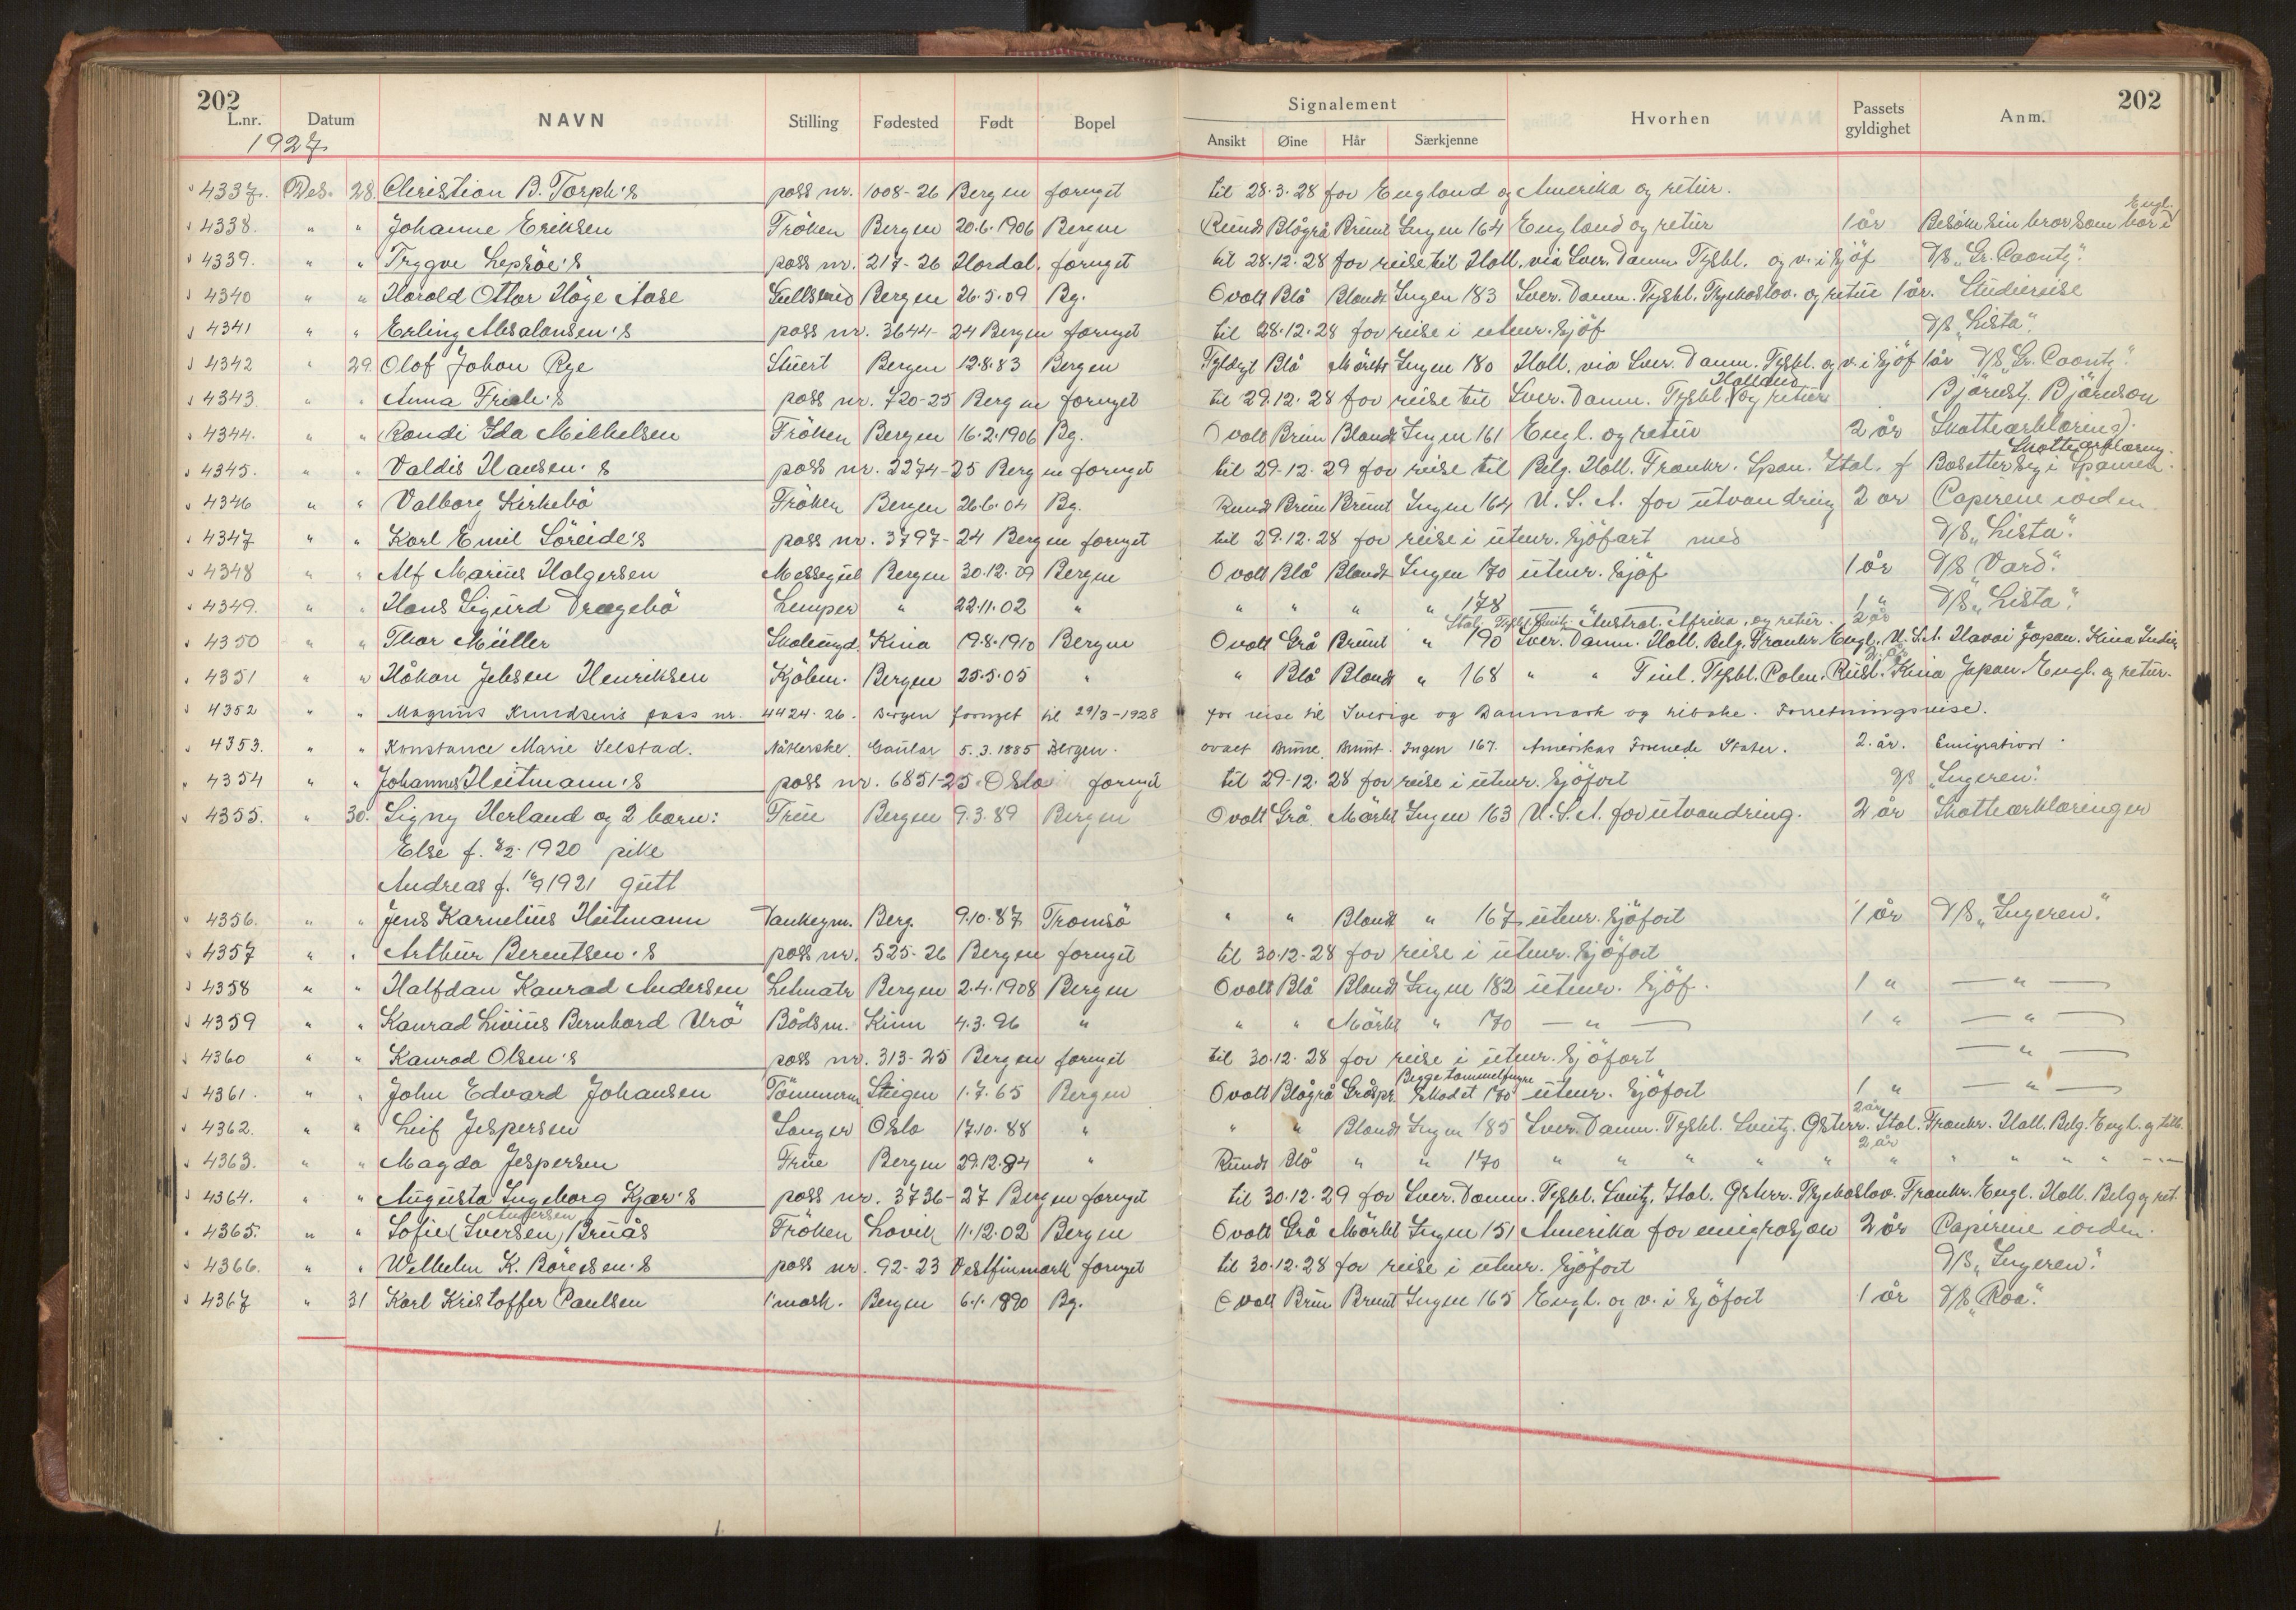 202
L.nr. Datum NAVN Stilling Fødested Født Bopel
Signalement Hvorhen Passets gyldighet Anm. 202
Ansikt Øine Hår Særkjenne
1927
4337. Des. 28. Christian B. Torph's pass nr. 1008-26 Bergen fornyet til 28.3.28 for England og Amerika og retur.
4338. " " Johanne Eriksen Fröken Bergen 20.6.1906 Bergen Rundt Blågrå Brunt Ingen 164 England og retur 1 år Besöke sin bror som bor i Engl.
4339. " " Trygve Lepsöe's pass nr. 217-26 Hordal. fornyet til 28.12.28 for reise til Holl. via Sver. Danm. Tyskl. og v. i Sjöf D/S „Gr. Coontz".
4340 " " Harald Ottar Höge Aase Gullsmed Bergen 26.5.09 Bg. Ovalt Blå Blondt Ingen 183 Sver. Danm. Tyskl. Tsjekoslov. og retur 1 år. Studiereise
4341 " " Erling Absalonsen's pass nr. 3644-24 Bergen fornyet til 28.12.28 for reise i utenr. Sjöf D/S „Lista".
4342 " 29. Olof Johan Rye Stuert Bergen 12.8.83 Bergen Fyldigt Blå Mörkt Ingen 180 Holl. via Sver. Danm. Tyskl. og v. i Sjöf 1 år D/S „Gr. Coontz".
4343 " " Anna Friele's pass nr. 720-25 Bergen fornyet til 29.12.28 for reise til Sver. Danm. Tyskl. Holland og retur Björnstj. Björnson
4344. " " Randi Ida Mikkelsen Fröken Bergen 16.2.1906 Bg. Ovalt Brun Blondt Ingen 161 Engl. og retur 2 år Skatteerklæring.
4345. " " Valdis Hansen's pass nr. 2274-25 Bergen fornyet til 29.12.29 for reise til Belg. Holl. Frankr. Span. Ital. f Bosetter sig i Spanien. Skatteerklæring.
4346 " " Valborg Kirkebö Fröken Bergen 26.6.04 Bg. Rundt Brun Brunt Ingen 164 U.S.A. for utvandring 2 år Papirene iorden
4347 " " Karl Emil Söreide's pass nr. 3797-24 Bergen fornyet til 29.12.28 for reise i utenr. Sjöfart med D/S „Lista".
4348 " " Alf Marius Holgersen Messegut Bergen 30.12.09 Bergen Ovalt Blå Blondt Ingen 170 utenr. Sjöf 1 år D/S „Vard".
4349. " " Hans Sigurd Dragebö Lemper " 22.11.02 " " " " " 178 — " — 1 " D/S „Lista".
4350 " " Thor Müller Skoleungd. Kina 19.8.1910 Bergen Ovalt Grå Brunt " 190 Sver. Danm. Holl. Belg. Frankr. Engl. U.S.A. Havai Japan. Kina Indien Ital. Tyskl. Austral. Afrika, og retur. 2 år
4351 " " Håkon Jebsen Henriksen Kjöbm. Bergen 25.5.05 " " Blå Blondt " 168 " " Finl. Tyskl. Polen. Russl. Kina Japan Engl. og retur. 2. år
4352 " " Magnus Knudsens pass nr. 4424-26. Bergen fornyet til 29/3-1928 for reise til Sverige og Danmark og tibake. Forretningsreise.
4353. " " Konstance Marie Selstad. Nåterske. Gaular 5.3.1885 Bergen. ovalt Brune. Brunt. Ingen 167. Amerikas Forenede Stater. 2. år. Emigration.
4354 " " Johannes Heitmann's pass nr. 6851-25 Oslo fornyet til 29-12.28 for reise i utenr. Sjöfart D/S „Ingeren".
4355. " 30. Signy Herland og 2 barn: Frue Bergen 9.3.89 Bergen Ovalt Grå Mörkt Ingen 163 U.S.A. for utvandring. 2 år Skatteerklæringer
Else f. 8/2.1920 pike
Andreas f. 16/9 1921 gutt
4356. " " Jens Karnelius Heitmann Dankeym. Berg. 9.10.87 Tromsö " " Blondt " 167 utenr. Sjöfart 1 år D/S „Ingeren".
4357 " " Arthur Berentsen's pass nr. 525-26 Bergen fornyet til 30.12-28 for reise i utenr. Sjöfart
4358 " " Halfdan Konrad Andersen Letmatr Bergen 2.4.1908 Bergen Ovalt Blå Blondt Ingen 182 utenr. Sjöf. 1 " — " —
4359 " " Konrad Livius Bernhard Urö Bådsm. Kinn 4.3.96 " " " Mörkt " 170 — " — 1 " — " —
4360 " " Konrad Olsen's pass nr. 313-25 Bergen fornyet til 30.12.28 for reise i utenr. Sjöfart — " —
4361. " " John Edvard Johansen Tömmerm. Steigen 1.7.65 Bergen Ovalt Blågrå Gråspr. Begge tommelfingre skadet 170 utenr. Sjöfart 1 " — " —
4362. " " Leif Jespersen Sanger Oslo 17.10.88 " " " Blondt Ingen 185 Sver. Danm. Tyskl. Sveitz. Østerr. Ital. Frankr. Holl. Belg. Engl. og tilb. 2 år
4363. " " Magda Jespersen Frue Bergen 29.12.84 " Rundt Blå " " 170 " " " " " " " " " " — " — 2 år
4364. " " Augusta Ingeborg Kjær's pass nr. 3736-27 Bergen fornyet til 30.12.29 for Sver. Danm. Tyskl. Sveitz. Ital. Østerr. Tsjekoslov. Frankr. Engl. Holl. Belg og ret.
4365. " " Sofie (Iversen) Andersen Bruås Fröken Lavik 11.12.02 Bergen Ovalt Grå Mörkt Ingen 151 Amerika for emigrasjon 2 år Papirene iorden.
4366. " " Wilhelm K. Börresen's pass nr. 92-23 Vestfinmark fornyet til 30.12.28 for reise i utenr. Sjöfart D/S „Ingeren".
4367 " 31 Karl Kristoffer Paulsen 1'mask. Bergen 6.1.1890 Bg. Ovalt Brun Brunt Ingen 165 Engl. og v. i Sjöfart 1 år D/S „Roa".